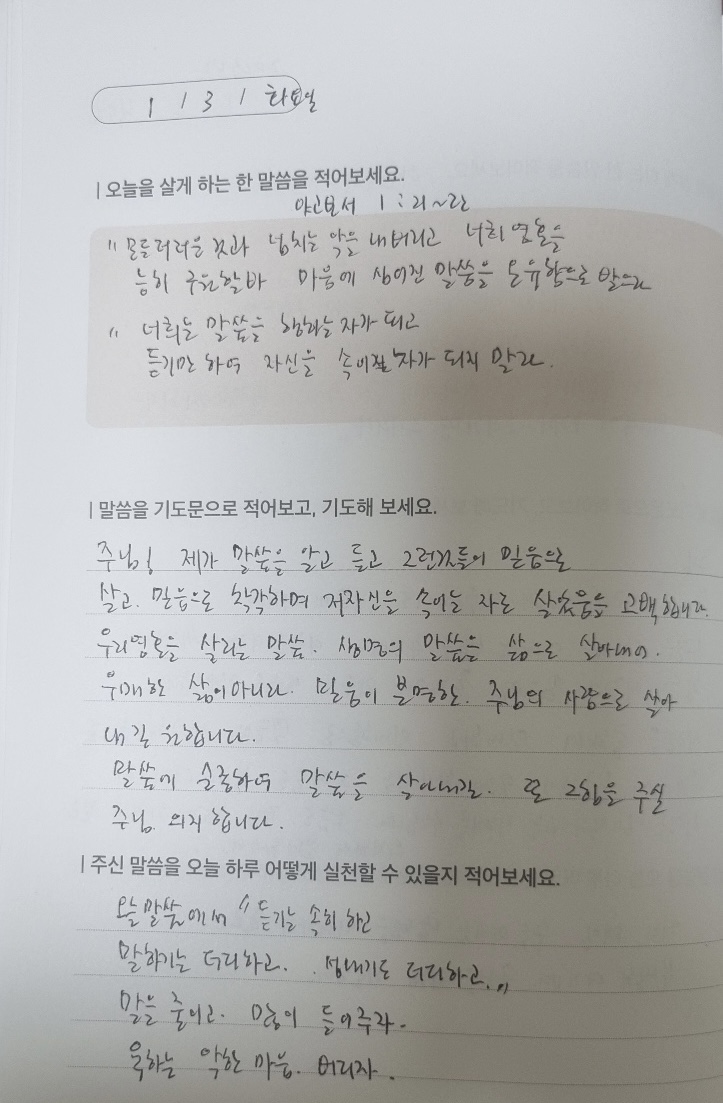 1 / 3 / 화요일
| 오늘을 살게 하는 한 말씀을 적어보세요.
야고보서 1:21~22
" 모든더러운 것과 넘치는 악을 내버리고 너희 영혼을
능히 구원할바 마음에 심어진 말씀을 온유함으로 받으라
" 너희는 말씀을 행하는자가 되고
듣기만 하여 자신을 속이는 자가 되지 말라.
| 말씀을 기도문으로 적어보고, 기도해 보세요.
주님! 제가 말씀을 알고 듣고 그런것들이 믿음으로
살고. 믿음으로 착각하며 저자신을 속이는 자로 살았음을 고백합니다.
우리영혼을 살리는 말씀. 생명의 말씀을 삶으로 살아내어.
우매한 삶이아니라. 믿음이 분명한. 주님의 사람으로 살아
내길 원합니다.
말씀에 순종하여 말씀을 살아내길. 또 그힘을 주실
주님. 의지합니다.
| 주신 말씀을 오늘 하루 어떻게 실천할 수 있을지 적어보세요.
오늘말씀에서 " 듣기는 속히 하고
말하기는 더디하고. 성내기도 더디하고.."
말을 줄이고. 많이 들어주라.
욱하는 악한 마음. 버리자.